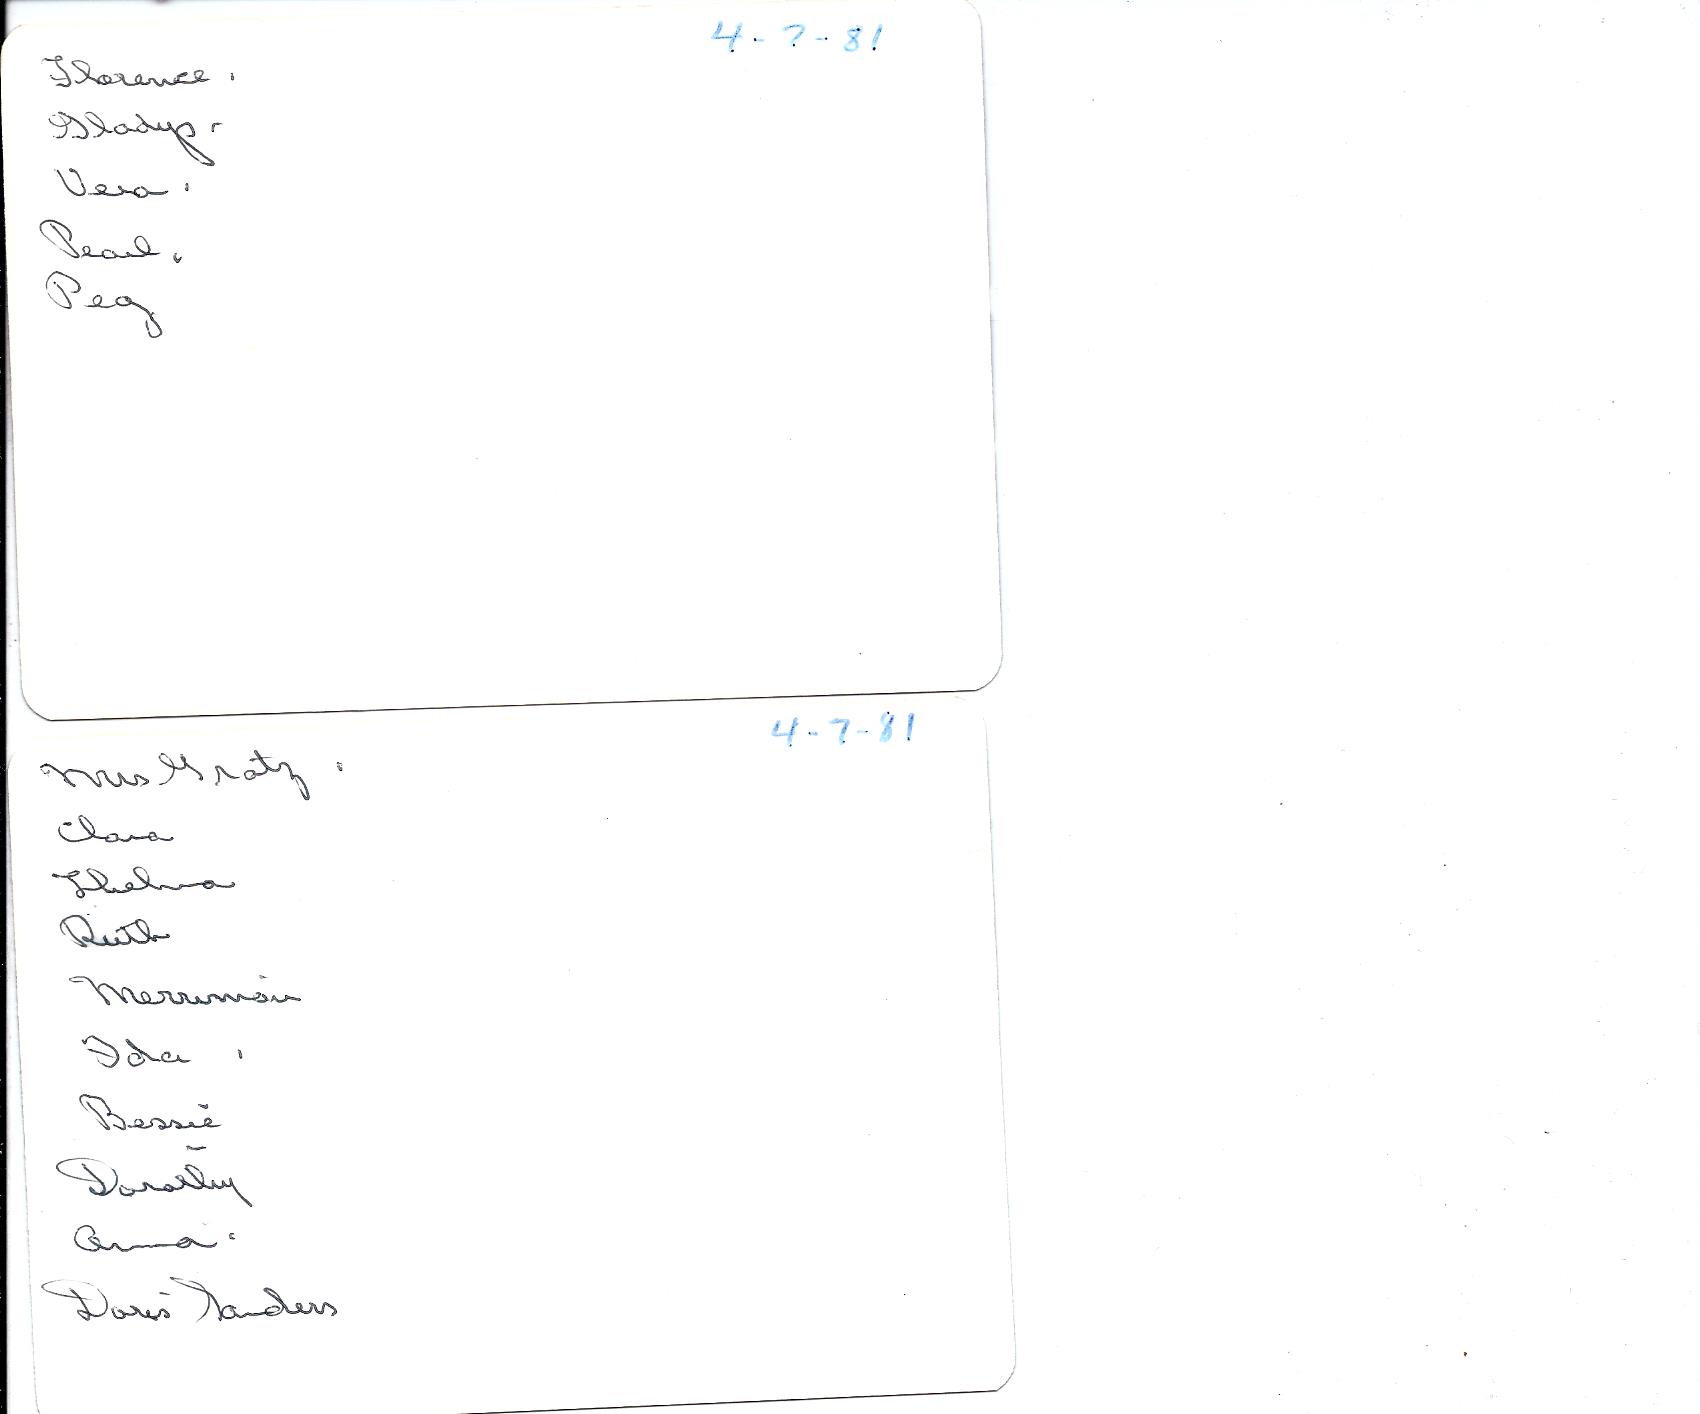 4-7-81
Florence.
Gladys.
Vera.
Pearl.
Peg
4-7-81
Mrs Gratz.
Clara
Thelma
Ruth
Merriman
Ida.
Bessie
Dorothy
Anna.
Doris Sanders